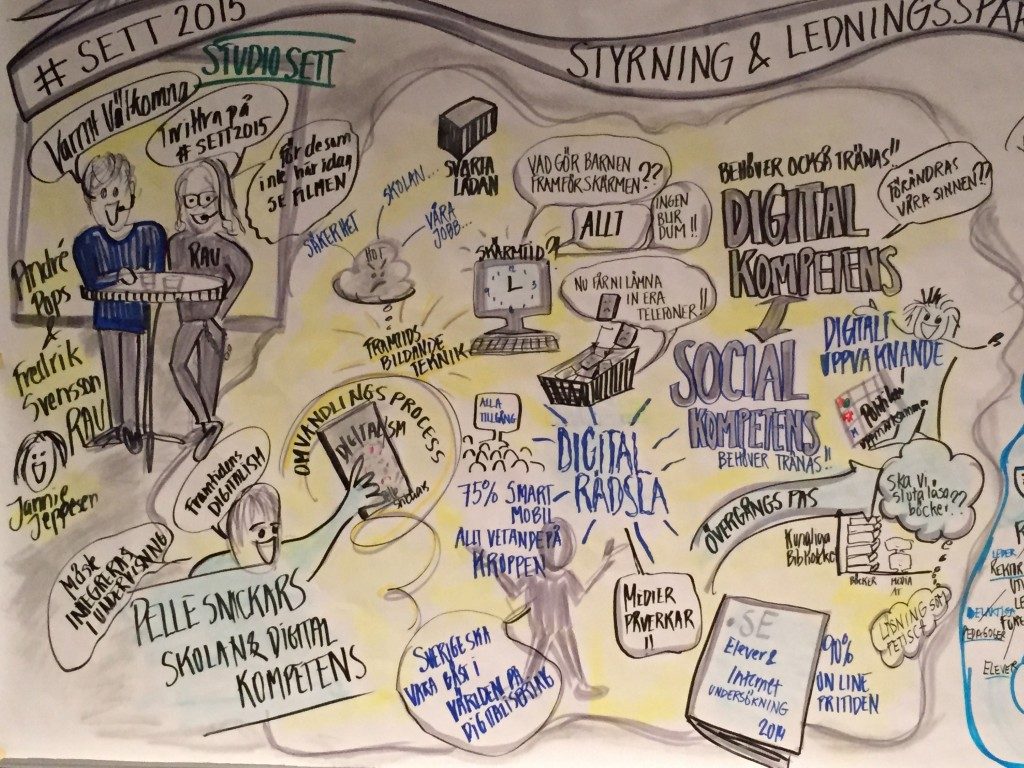 # SETT 2015
STUDIO SETT
STYRNING & LEDNINGSSPÅR
Varmt Välkomna
Twittra på
# SETT2015
För de som
inte här idag
SE FILMEN
RAU
André
Pops
&
Fredrik
Svensson
RAU
Jannie
Jeppesen
SVARTA
LÅDAN
SKOLAN...
VÅRA
JOBB...
SÄKERHET
HOT
FRAMTIDS
BILDANDE
TEKNIK
VAD GÖR BARNEN
FRAMFÖR SKÄRMEN??
ALLT
INGEN
BLIR
DUM!!
SKÄRMTID?!
NU FÅR NI LÄMNA
IN ERA
TELEFONER!!
BEHÖVER OCKSÅ TRÄNAS!!
DIGITAL
KOMPETENS
FÖRÄNDRAS
VÅRA SINNEN??
SOCIAL
KOMPETENS
BEHÖVER TRÄNAS!!
DIGITALT
UPPVAKNANDE
OMVANDLINGSPROCESS
DIGITALISM
Pelle
Snickars
Framtidens
DIGITALISM
MÅSTE
INTEGRERAS
I UNDERVISNING
PELLE SNICKARS
SKOLAN & DIGITAL
KOMPETENS
ALLA
TILLGÅNG
75% SMART
MOBIL
ALLT VETANDE PÅ
KROPPEN
DIGITAL
RÄDSLA
SVERIGE SKA
VARA BÄST I
VÄRLDEN PÅ
DIGITALISERING
MEDIER
PÅVERKAR
!!
ÖVERGÅNGS PAS
Kungliga
Biblioteket
BÖCKER
MEDIA
Ska vi
sluta läsa
böcker??
.SE
Elever &
Internet
UNDERSÖKNING
2014
90%
ONLINE
FRITIDEN
LEDER
REKTOR
ELEVER